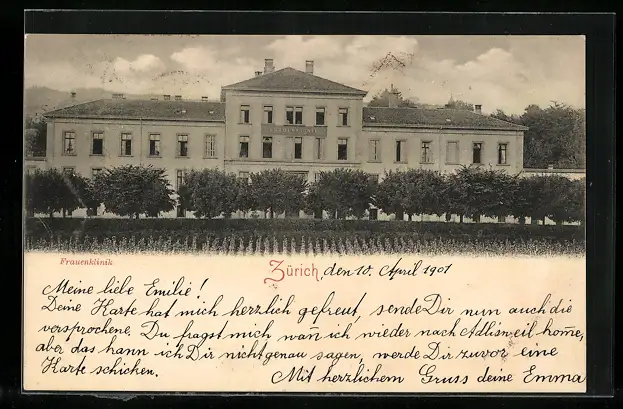 Frauenklinik
Zürich, den 10. April 1901
Meine liebe Emilie!
Deine Karte hat mich herzlich gefreut, sende Dir nun auch die
versprochene. Du fragst mich wañ ich wieder nach Adlisweil kom̃e,
aber das kann ich Dir nicht genau sagen, werde Dir zuvor eine
Karte schicken.
Mit herzlichem Gruss deine Emma